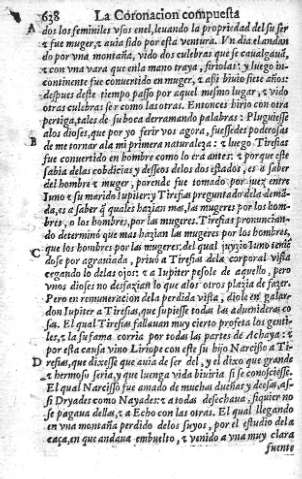 638 La Coronacion compuesta
A dos los feminiles vsos enel, leuando la propriedad del su ser
z fue muger, z auia sido por esta ventura. Vn dia el andan
do por vna montaña, vido dos culebras que se caualgauã,
z con vna vara que enla mano traya, firiolas: y luego in-
continente fue conuertido en muger, z assi biuio siete años:
despues deste tiempo passo por aquel mesmo lugar, z vido
otras culebras ser como las otras. Entonces hirio con otra
pertiga, tales de su boca derramando palabras: Pluguiesse
alos dioses, que por yo ferir vos agora, fuessedes poderosas
B de me tornar ala mi primera naturaleza: z luego Tiresias
fue conuertido en hombre como lo era antes: z porque este
sabia delas cobdicias y desseos delos dos estados, es a saber
del hombre z muger, porende fue tomado por juez entre
Iuno z su marido Iupiter: y Tiresias preguntado dela demã-
da, es a saber q̃ quales hazian mas, las mugeres por los hom-
bres, o los hombres, por las mugeres. Tiresias pronuncian-
do determinò que mas hazian las mugeres por los hombres,
que los hombres por las mugeres: del qual juyzio Iuno sentiẽ
C dose por agrauiada, priuò a Tiresias dela corporal vista
cegando lo delas ojos: z a Iupiter pesole de aquello, pero
vnos dioses no desfazian lo que alos otros plazia de fazer.
Pero en remuneracion dela perdida vista, diole en galar-
don Iupiter a Tiresias, que supiesse todas las adueuideras co
sas. El qual Tiresias fallauan muy cierto profeta los genti-
les, z la fama corria por todas las partes de Achaya: z
por esta causa vino Liriope con este su hijo Narcisso a Ti-
resias, que dixesse que auia de ser del, y el dixo que grande
D z hermoso seria, y que luenga vida biuiria si se conosciesse.
El qual Narcisso fue amado de muchas dueñas y deesas, as-
si Dryades como Nayades: z a todas desechaua, siquier no
se pagaua dellas, z a Echo con las otras. El qual llegando
en vna montaña perdido delos suyos, por el estudio dela
caça, en que andaua embuelto, z venido a vna muy clara
fuente